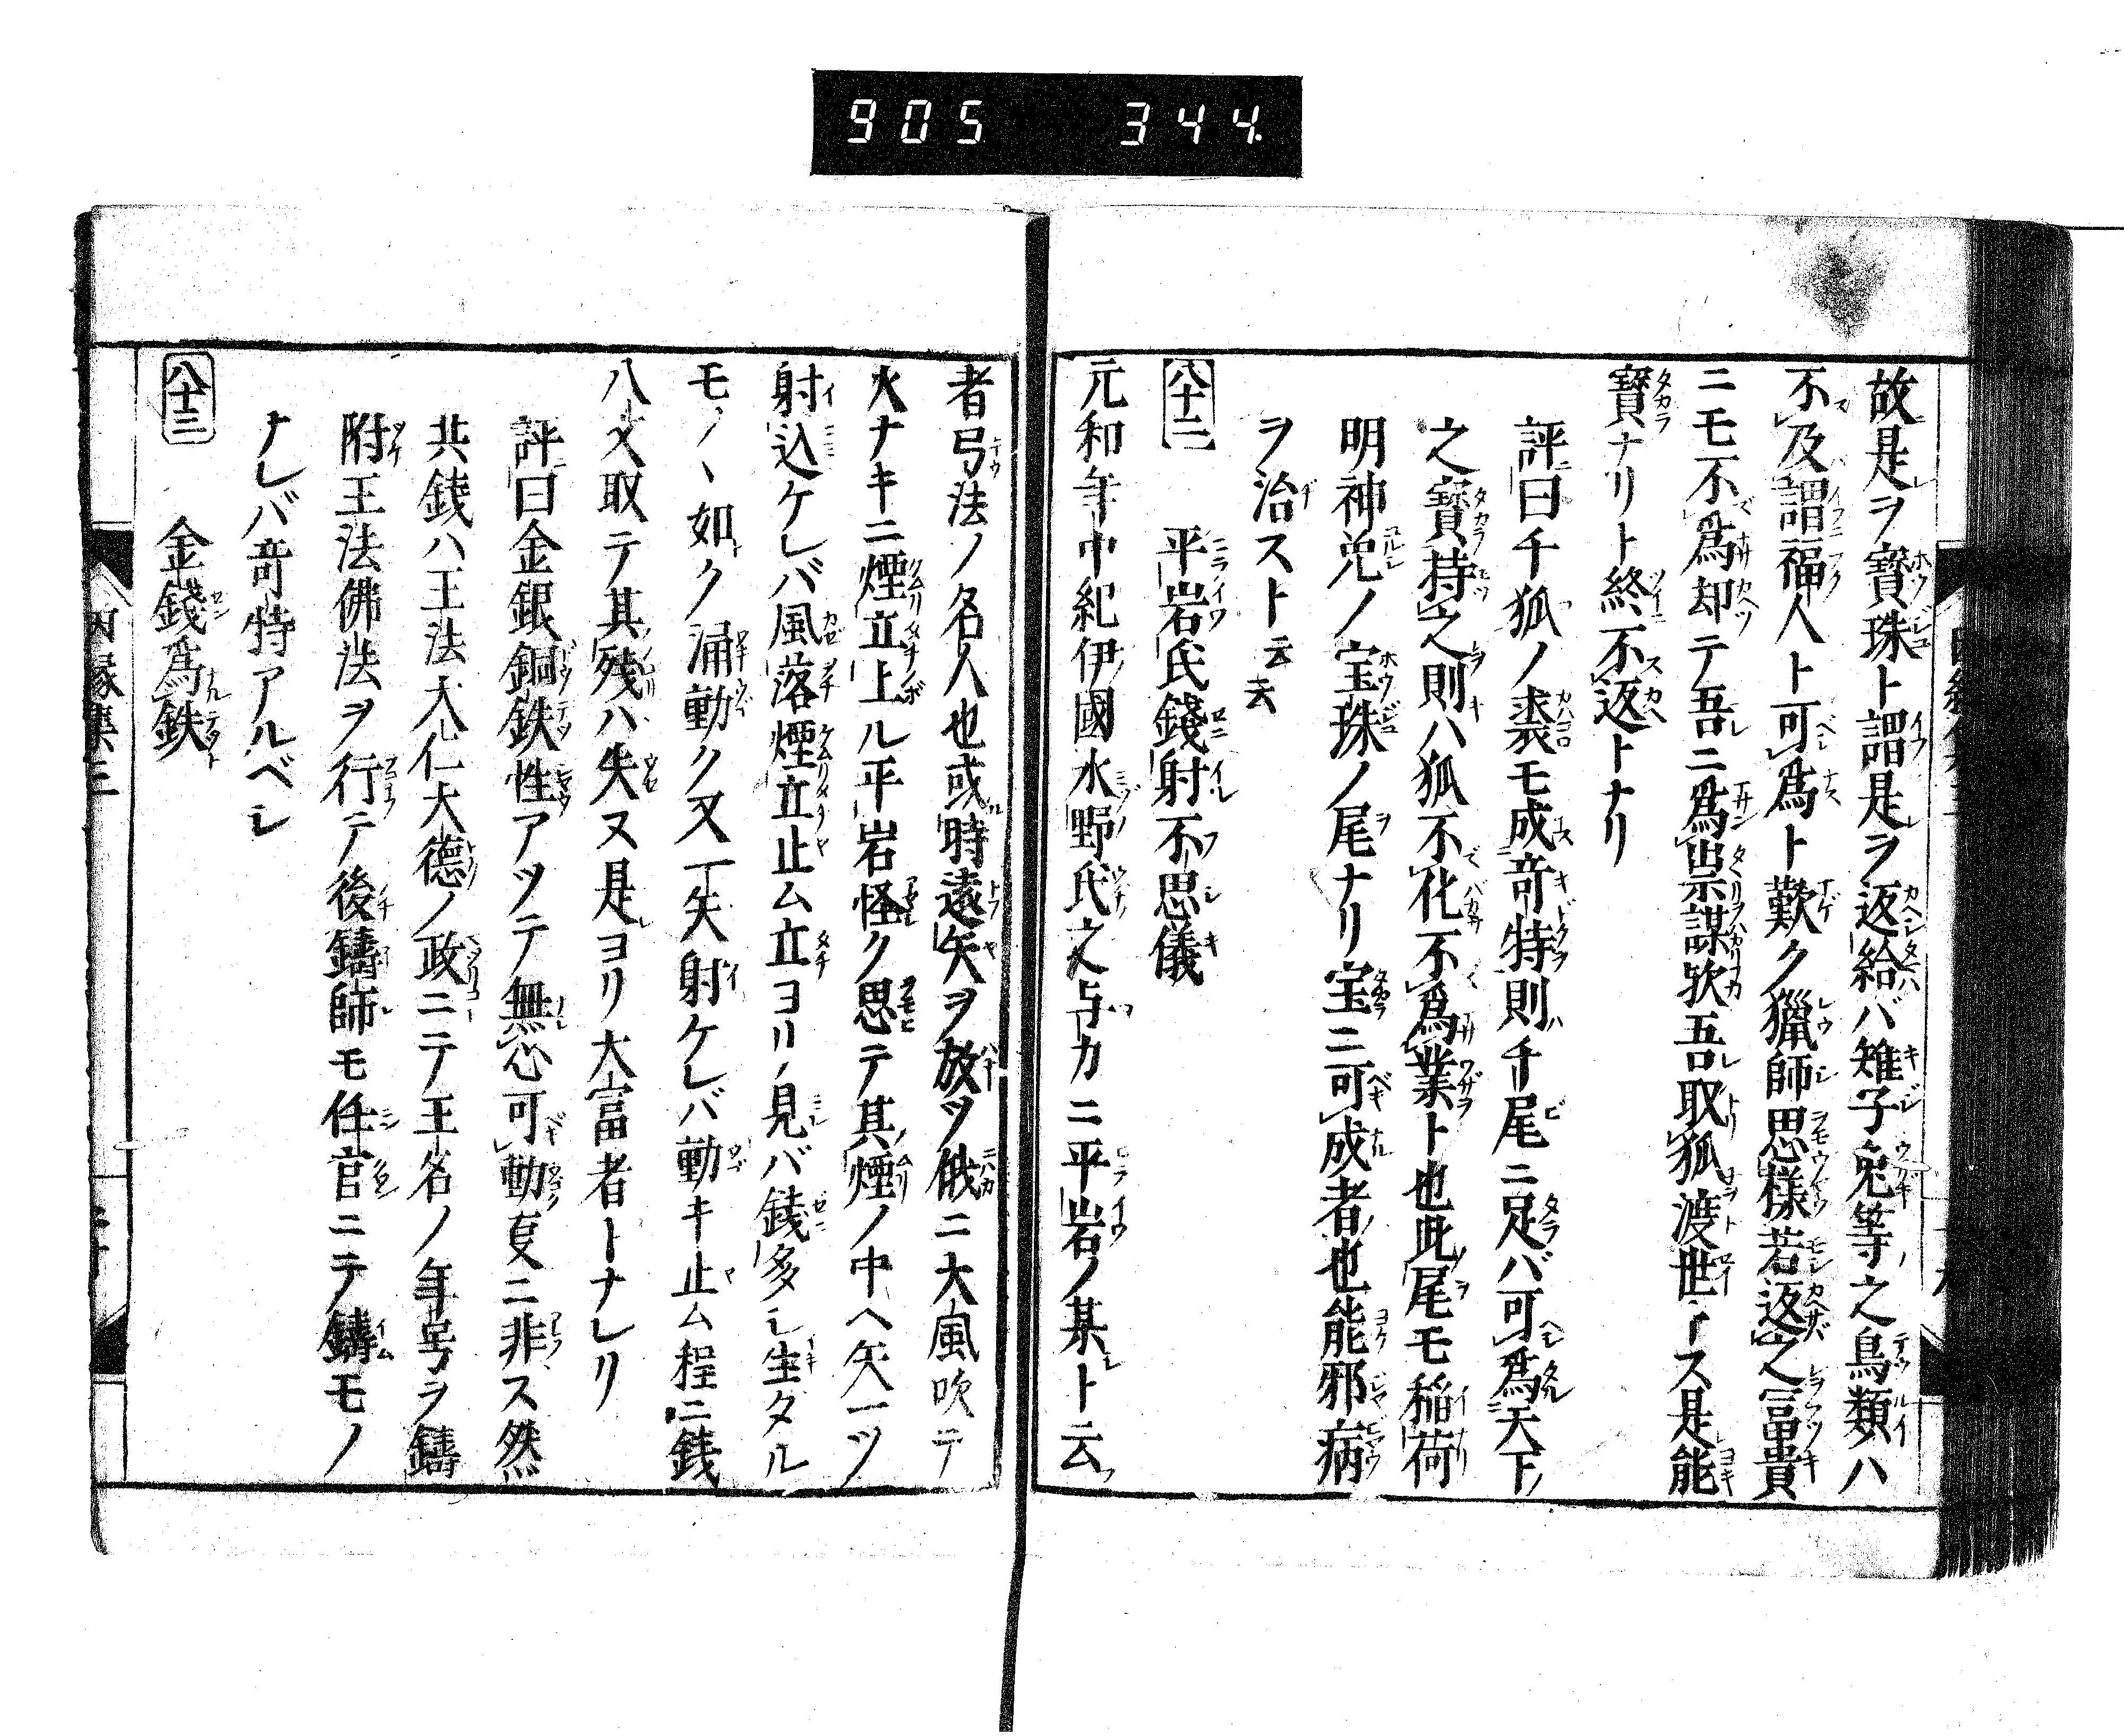 905 344
故是ヲ寳珠ト謂是ヲ返給バ雉子兎等之鳥類ハ
不及謂福人ト可爲ト歎ク獵師思樣若返之冨貴
ニモ不爲却テ吾ニ爲祟謀欤吾取狐渡世トス是能
寳ナリト終不返トナリ
評曰千狐ノ裘モ成竒特則千尾ニ足バ可爲天下ノ
之寳持之則ハ狐不化不爲業ト也此尾モ稲荷
明神兇ノ宝珠ノ尾ナリ宝ニ可成者也能邪病
ヲ治スト云云
八十二 平岩氏錢射不思儀
元和年中紀伊國水野氏之与力ニ平岩ノ某ト云
者弓法ノ名人也或時遠矢ヲ放ツ俄ニ大風吹テ
火ナキニ煙立上ル平岩怪ク思テ其煙ノ中ヘ矢一ツ
射込ケレバ風落煙立止ム立ヨリ見バ銭多シ生タル
モノヽ如ク涌動ク又一矢射ケレバ動キ止ム程ニ銭
八文取テ其残ハ失ヌ是ヨリ大富者トナレリ
評曰金銀銅鉄性アツテ無心可動叓ニ非ス然𪜈
共銭ハ王法大仁大德ノ政ニテ王名ノ年号ヲ鑄
附王法佛法ヲ行テ後鑄師モ任官ニテ鑄モノ
ナレバ竒特アルベシ
八十三 金錢爲鉄
因縁集三